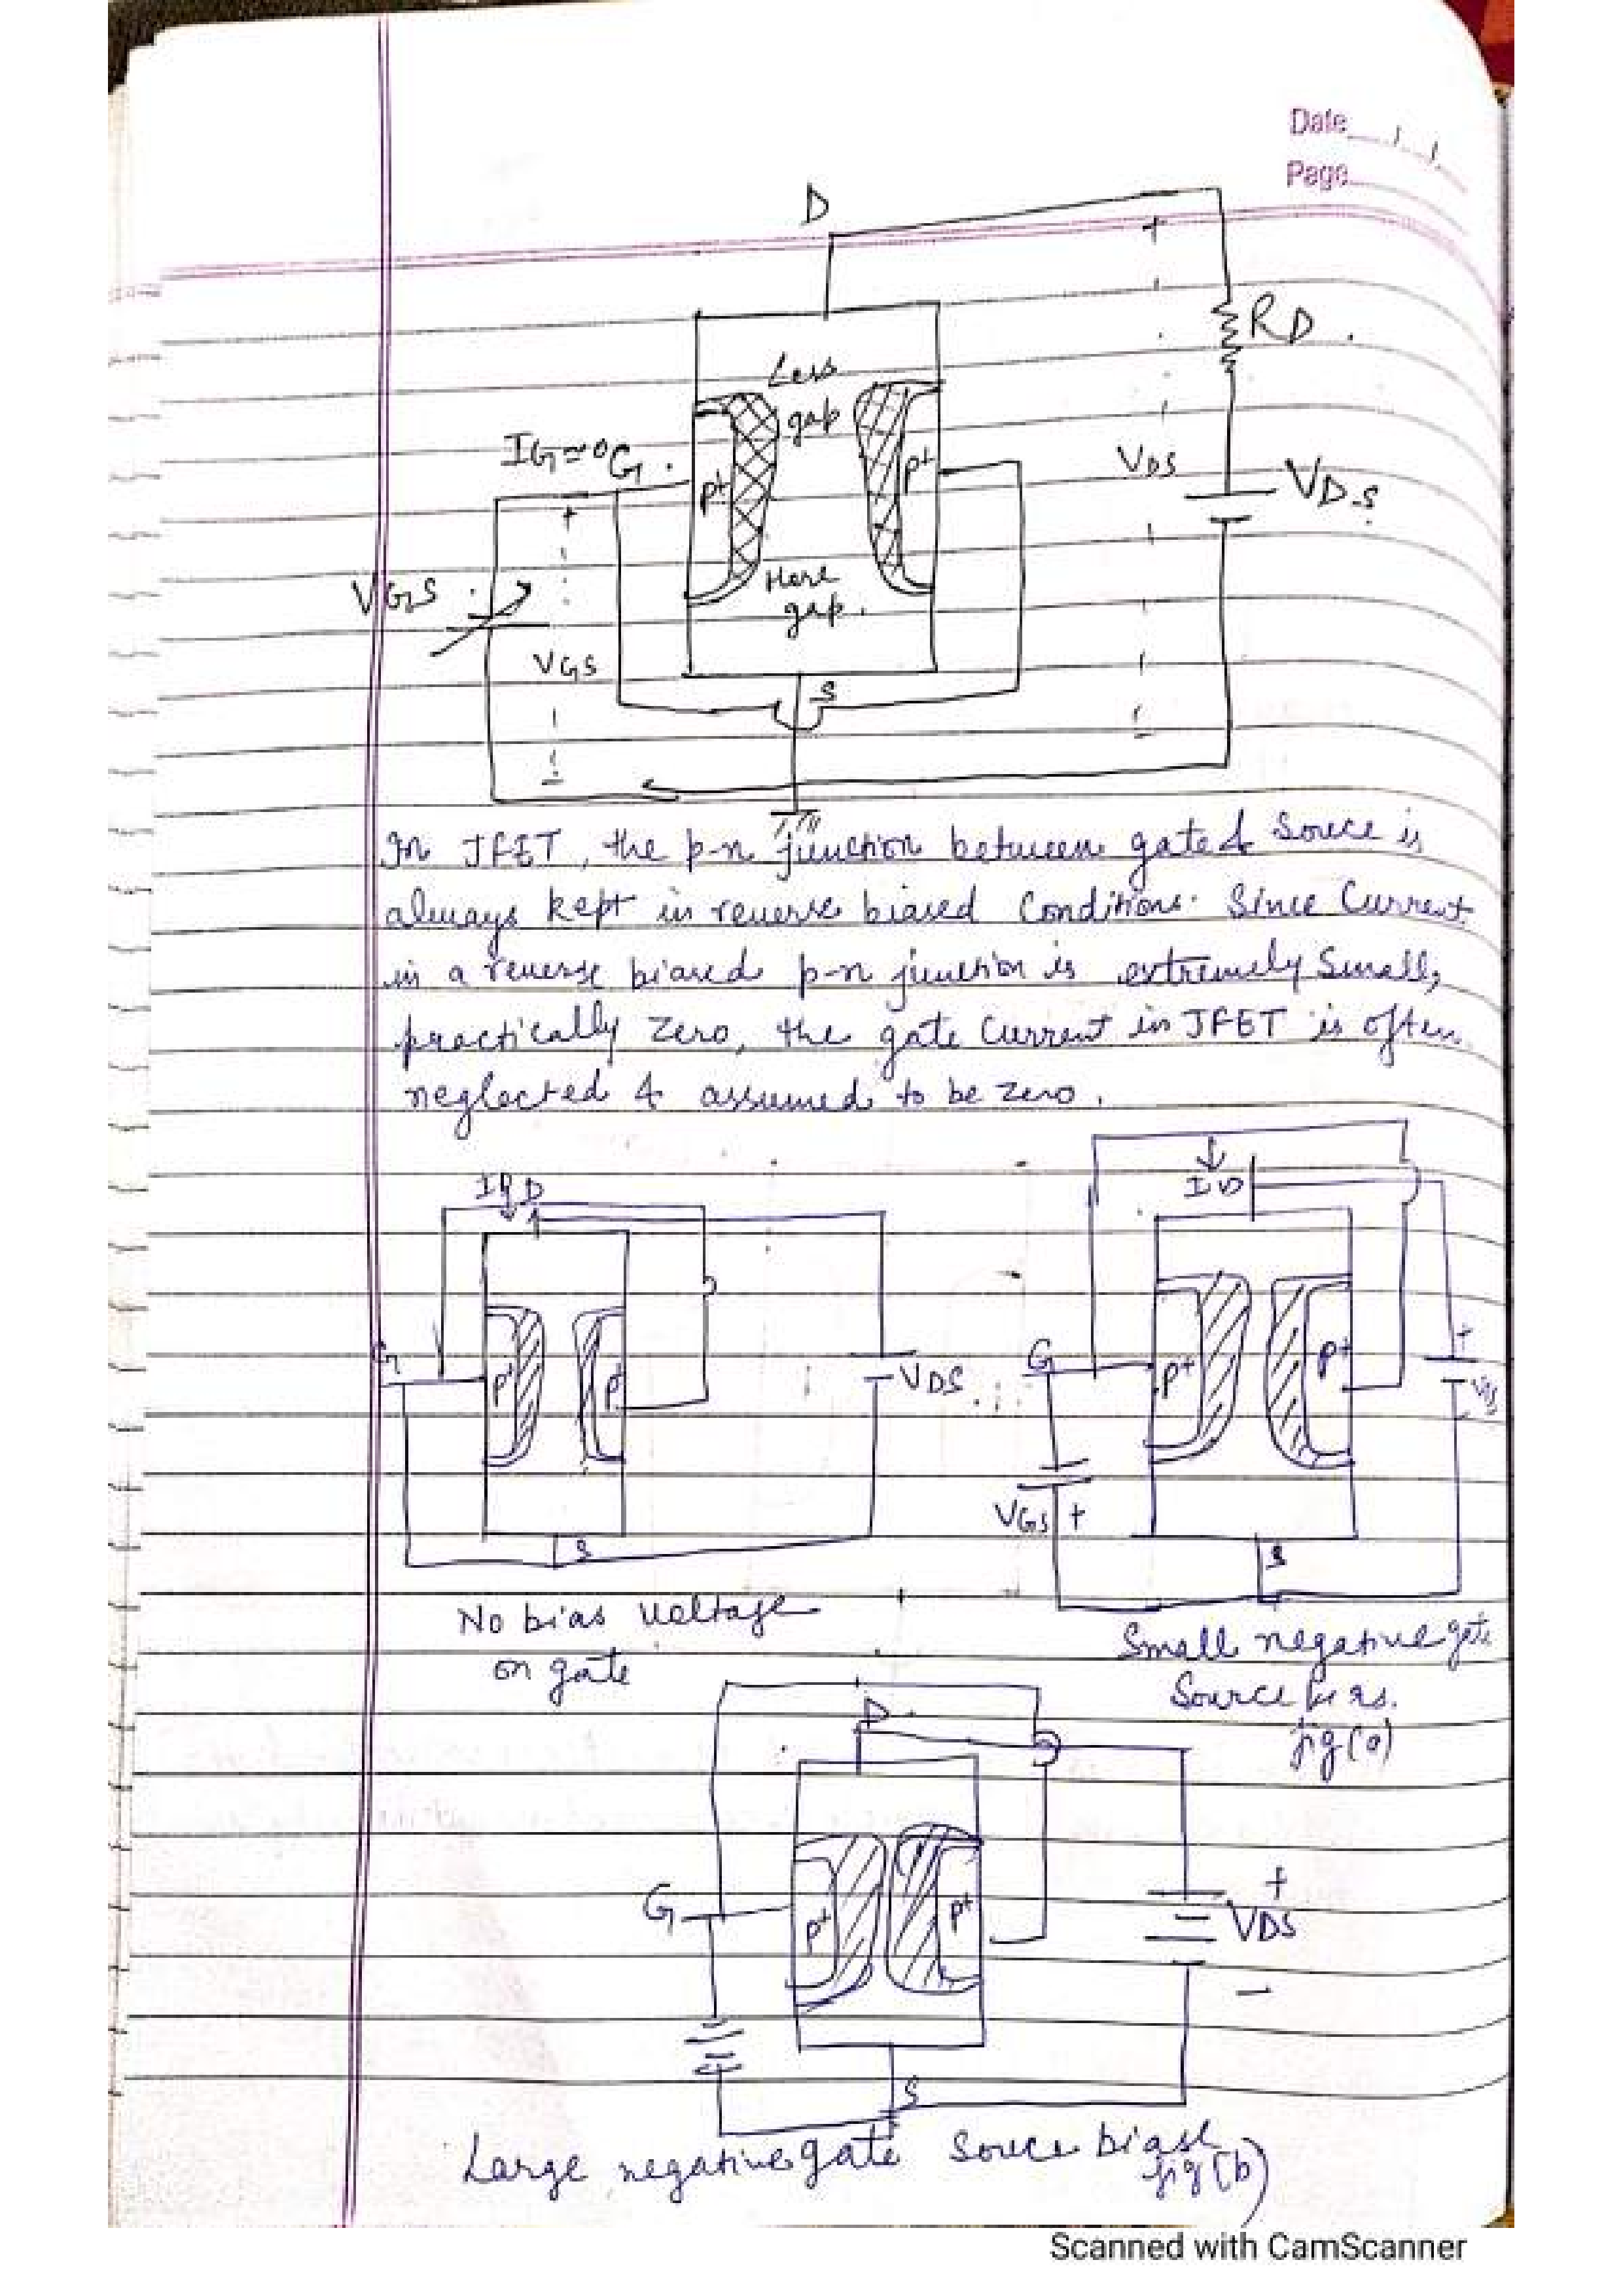 Date
Page
D
RD
Less
gap
IG≈0
G
p+
p+
VDS
VDS
VGS
More
gap
VGS
S
In JFET, the p-n junction between gate & Source is
always kept in reverse biased Conditions. Since Current
in a reverse biased p-n junction is extremely Small,
practically zero, the gate Current in JFET is often
neglected & assumed to be zero.
ID
D
ID
D
G
p+
p+
VDS
G
p+
p+
+
VDS
VGS +
S
S
No bias voltage
on gate
Small negative gate
Source bias.
fig(a)
D
G
p+
p+
+
VDS
-
S
Large negative gate Source bias
fig(b)
Scanned with CamScanner